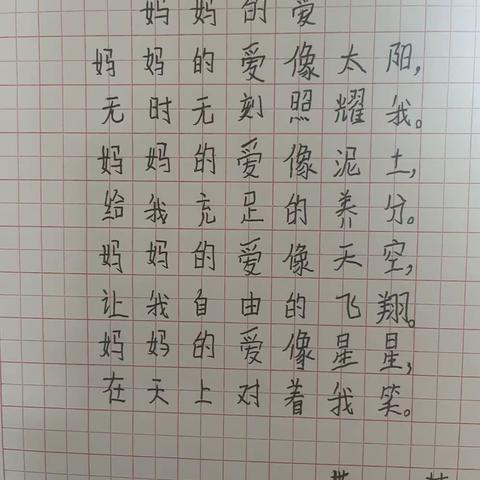 妈妈的爱
妈妈的爱像太阳,
无时无刻照耀我。
妈妈的爱像泥土,
给我充足的养分。
妈妈的爱像天空,
让我自由的飞翔。
妈妈的爱像星星,
在天上对着我笑。